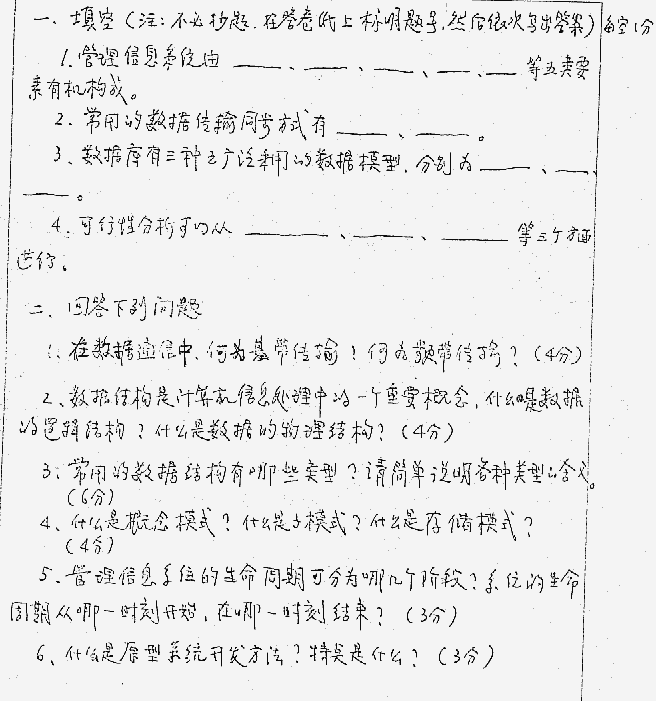 一、填空（注：不必抄题，在答卷纸上标明题号，然后依次写出答案）每空1分
1、管理信息系统由 ____、____、____、____、____ 等五类要
素有机构成。
2、常用的数据传输同步方式有 ____、____。
3、数据库有三种广泛采用的数据模型，分别为 ____、____、
____。
4、可行性分析可以从 ____、____、____ 等三个方面
进行。
二、回答下列问题
1、在数据通信中，何为基带传输？何为频带传输？（4分）
2、数据结构是计算机信息处理中的一个重要概念，什么是数据
的逻辑结构？什么是数据的物理结构？（4分）
3、常用的数据结构有哪些类型？请简单说明各种类型的含义。
（6分）
4、什么是概念模式？什么是子模式？什么是存储模式？
（4分）
5、管理信息系统的生命周期可分为哪几个阶段？系统的生命
周期从哪一时刻开始，在哪一时刻结束？（3分）
6、什么是原型系统开发方法？特点是什么？（3分）